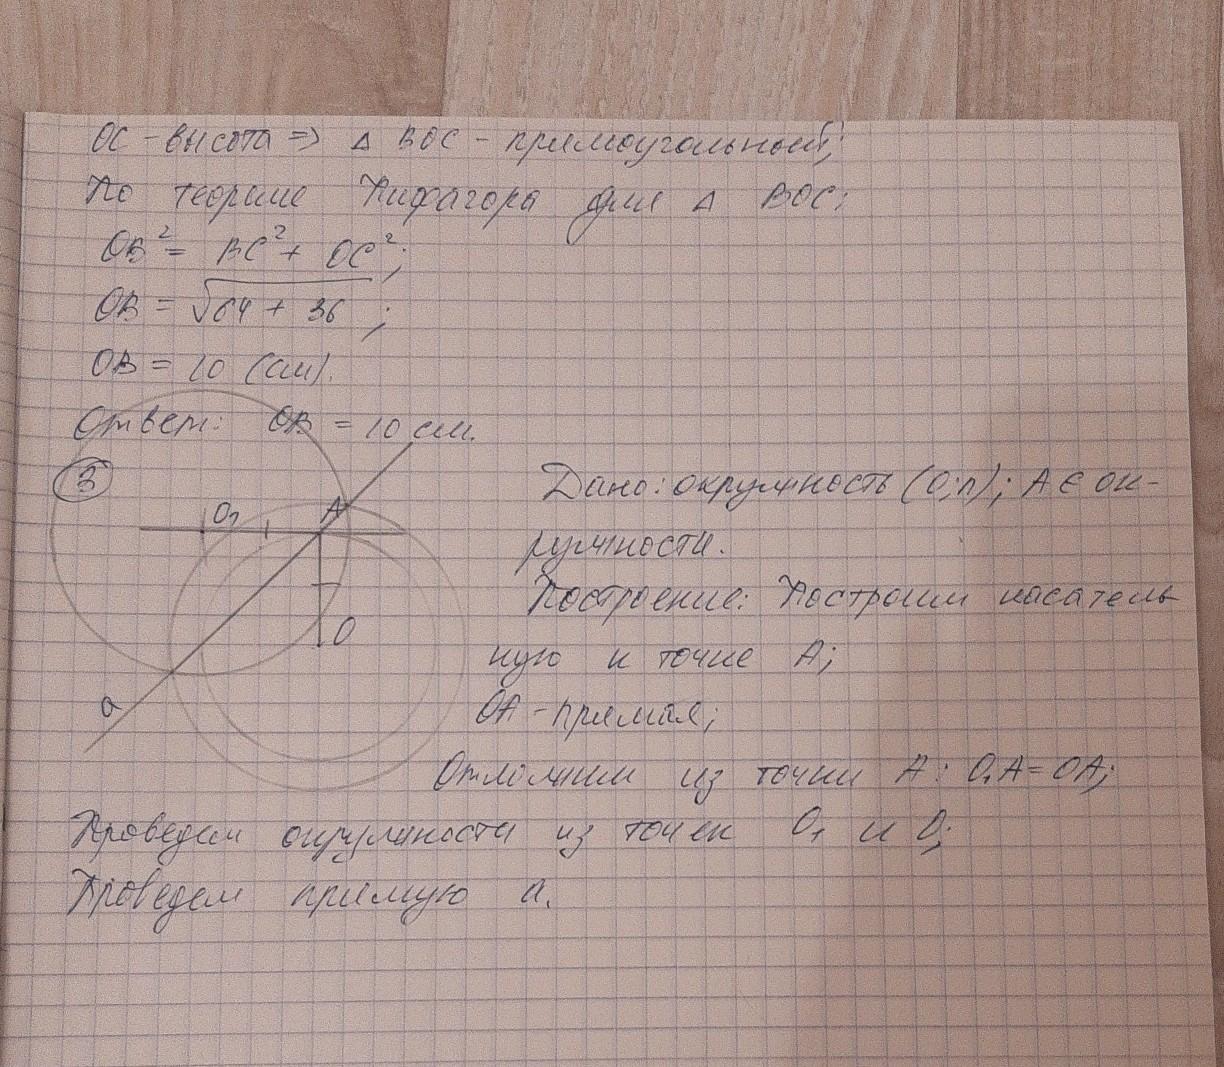 OC - высота => △ BOC - прямоугольный;
По теореме Пифагора для △ BOC:
OB² = BC² + OC²;
OB = √64 + 36 ;
OB = 10 (см).
Ответ: OB = 10 см.
3
Дано: окружность (O; r); A ∈ ок-
ружности.
Построение: Построим касатель
ную к точке A;
OA - прямая;
Отложим из точки A: O₁A = OA;
Проведем окружности из точек O₁ и O;
Проведем прямую a.
O₁
A
O
a